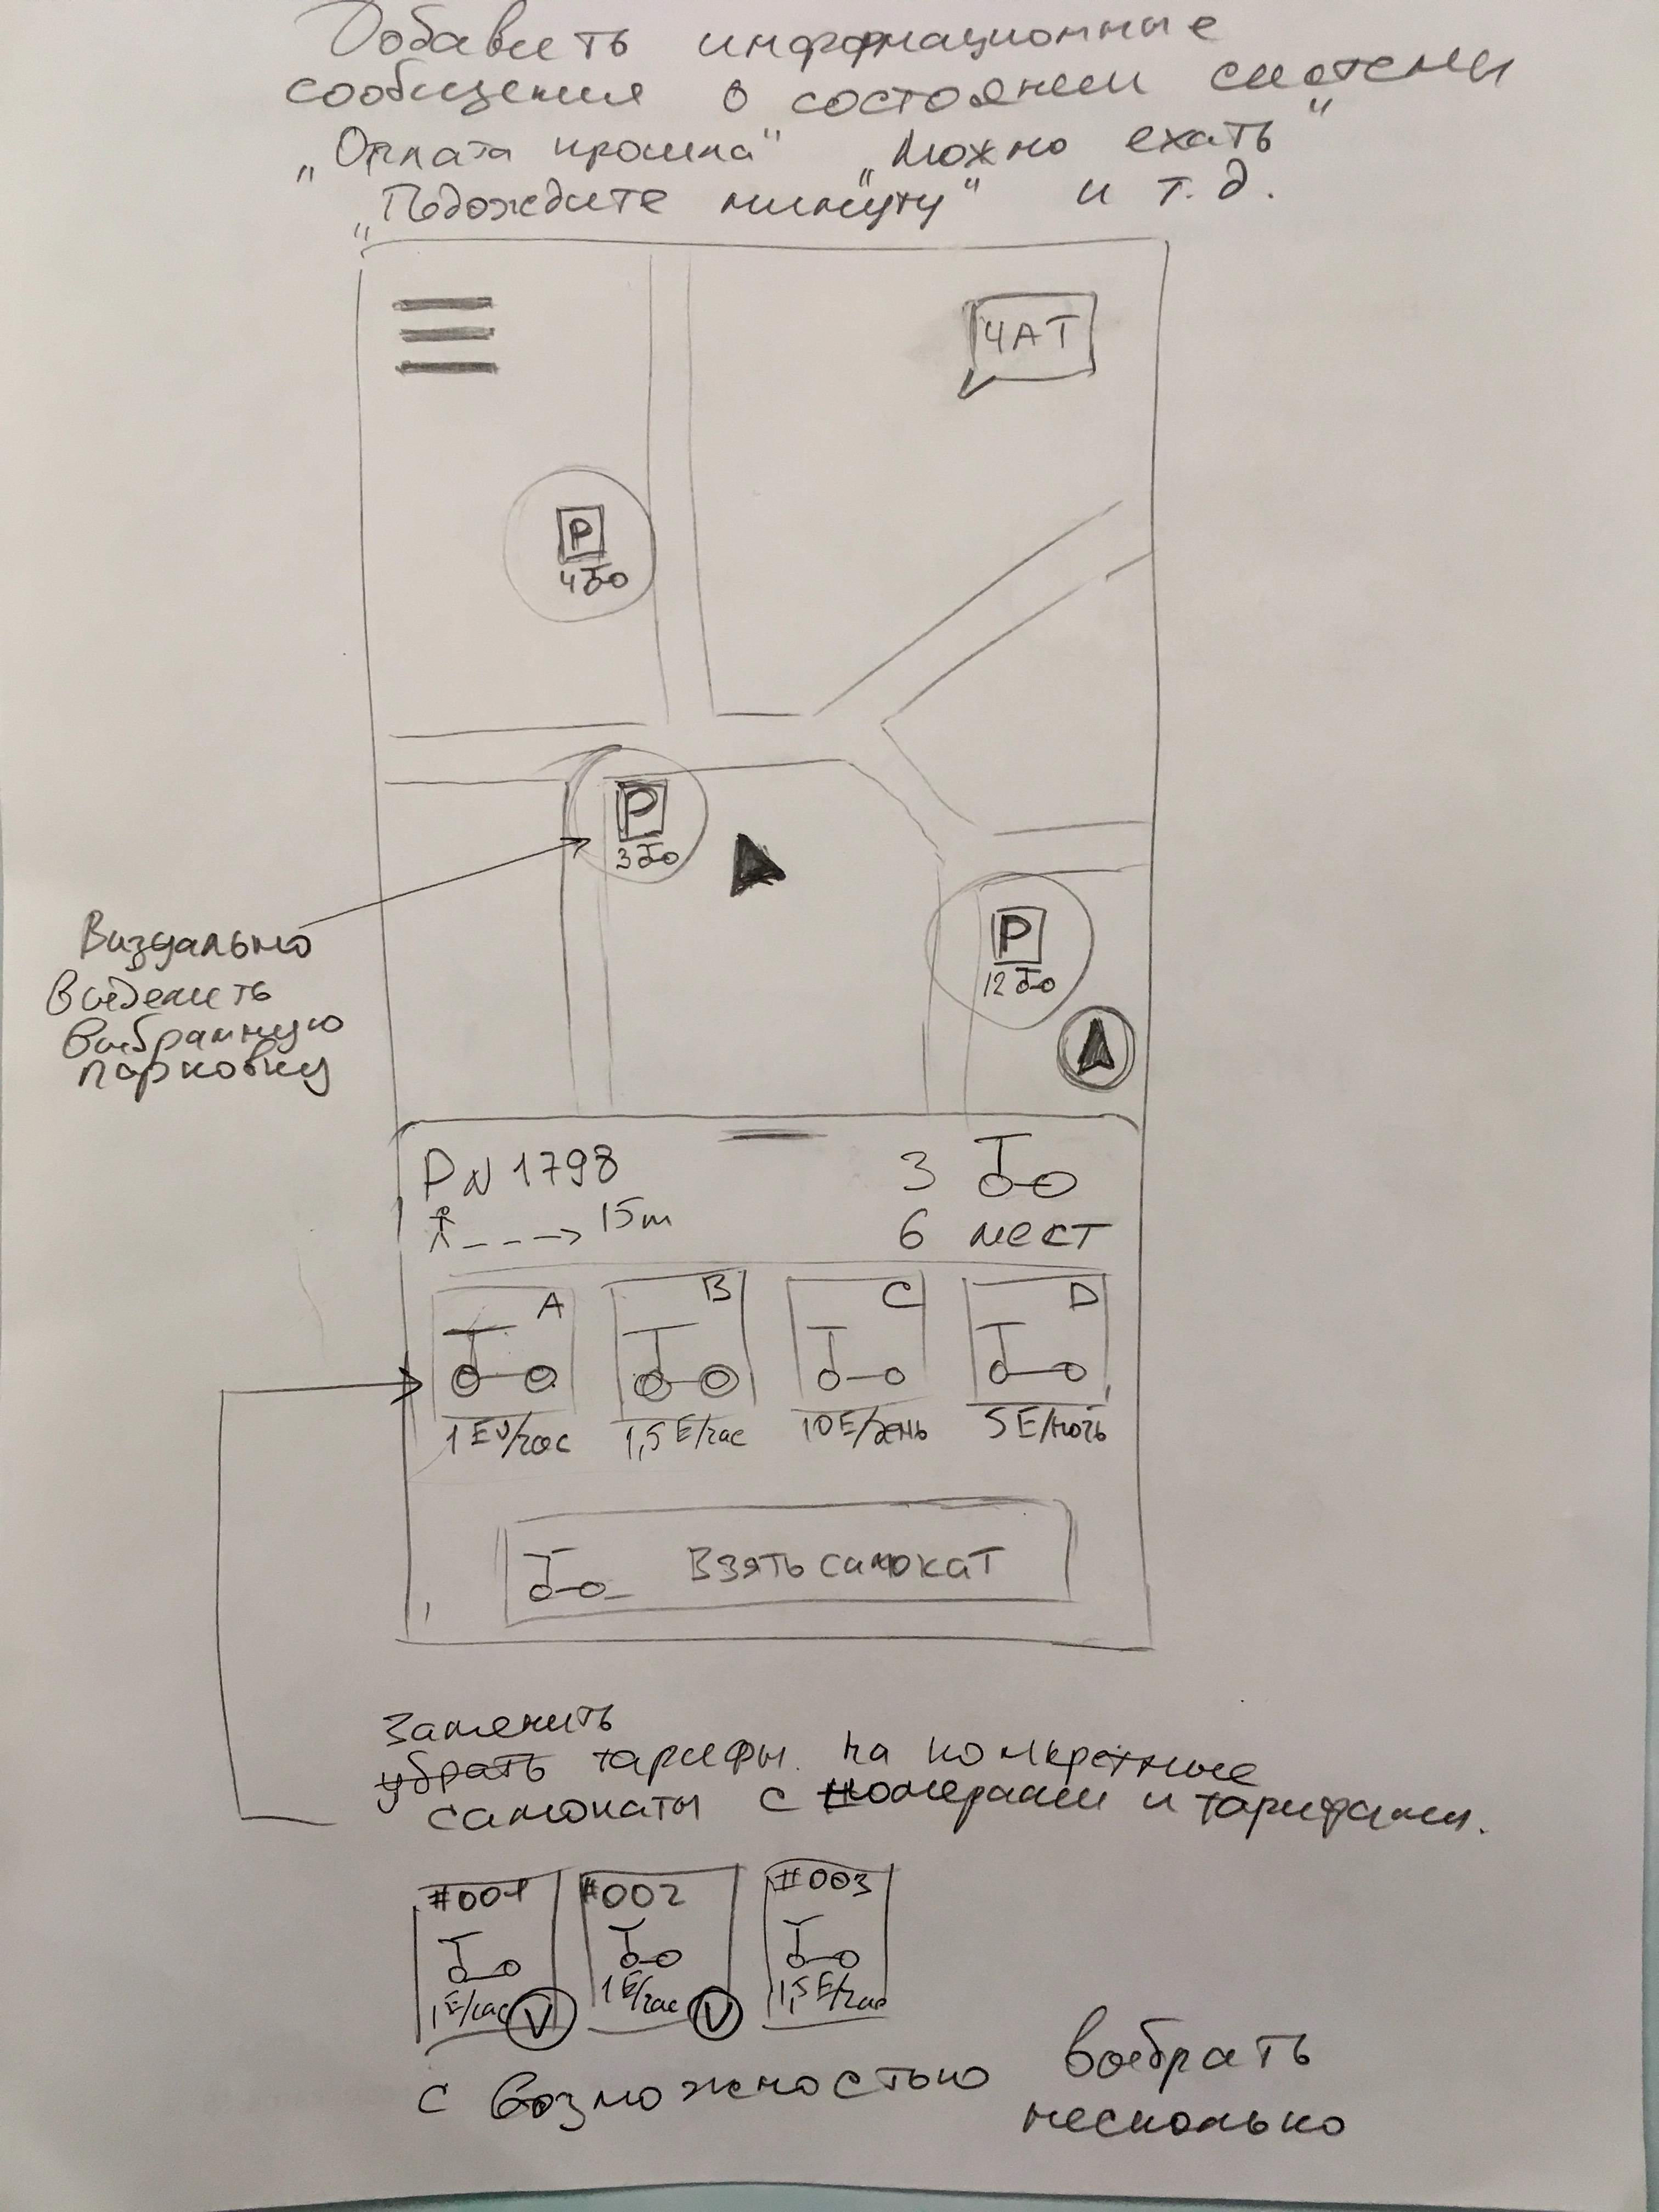 Добавить информационные
сообщения о состоянии системы
„Оплата прошла" „Можно ехать"
„Подождите минуту" и т.д.
ЧАТ
P
4
P
3
P
12
Визуально
выделить
выбранную
парковку
PN 1798
3
15m
6 мест
A
B
C
D
1 EU/час
1,5 E/час
10 E/день
5 E/ночь
Взять самокат
Заменить
убрать тарифы на конкретные
самокаты с номерами и тарифами.
#001
#002
#003
1E/час
V
1E/час
V
1,5E/час
с возможностью выбрать
несколько